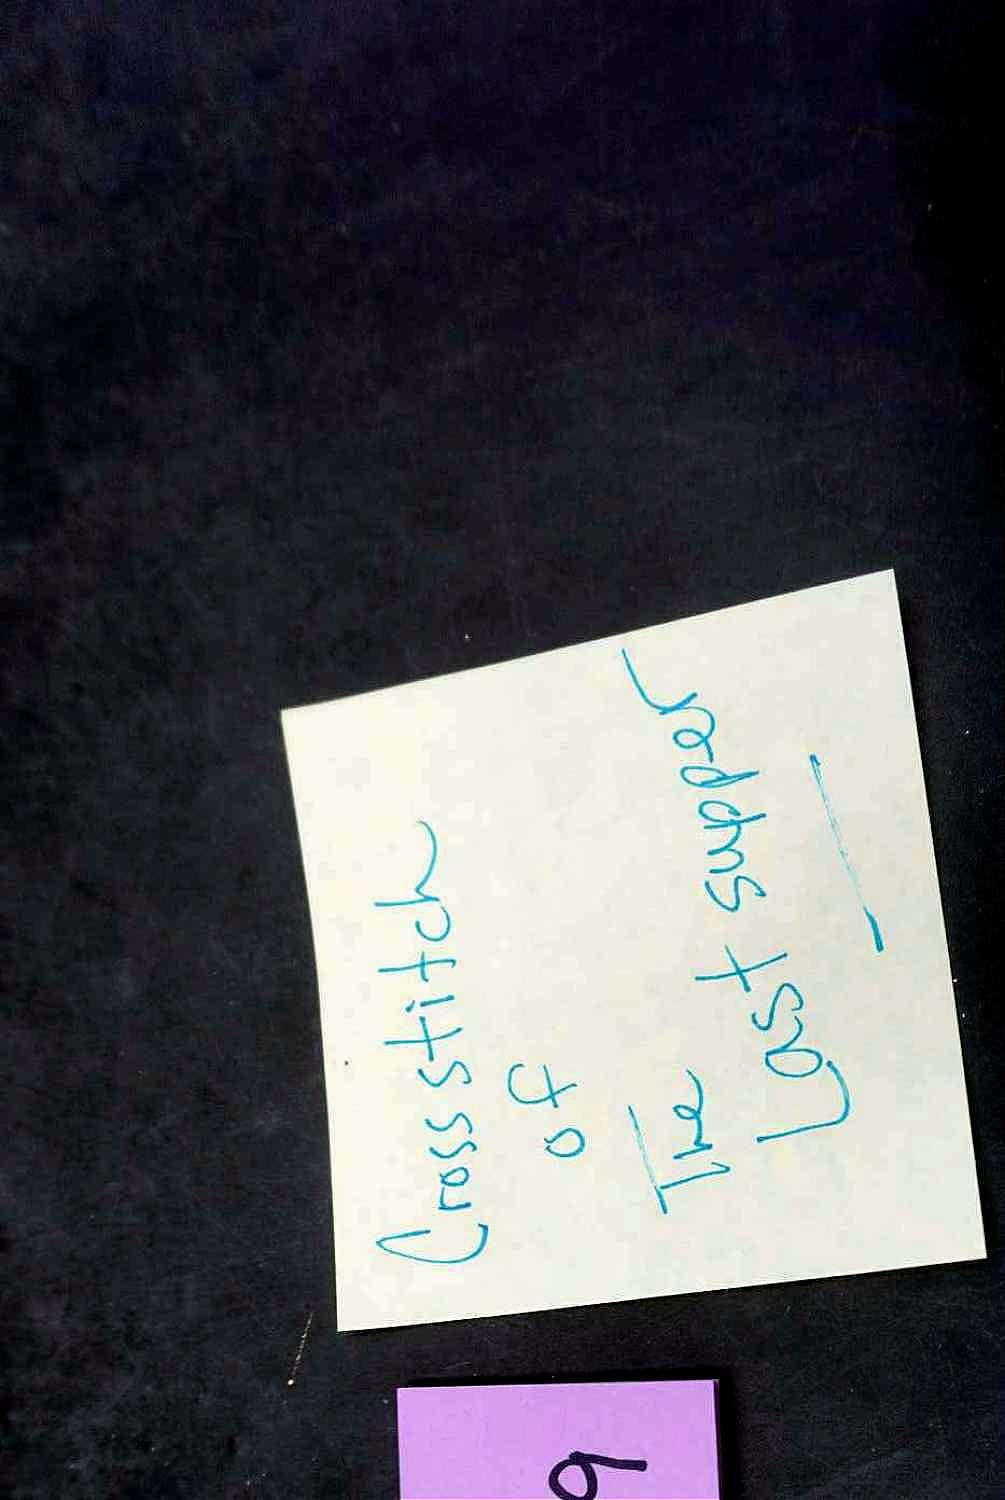 Cross stitch
of
The
Last supper
9